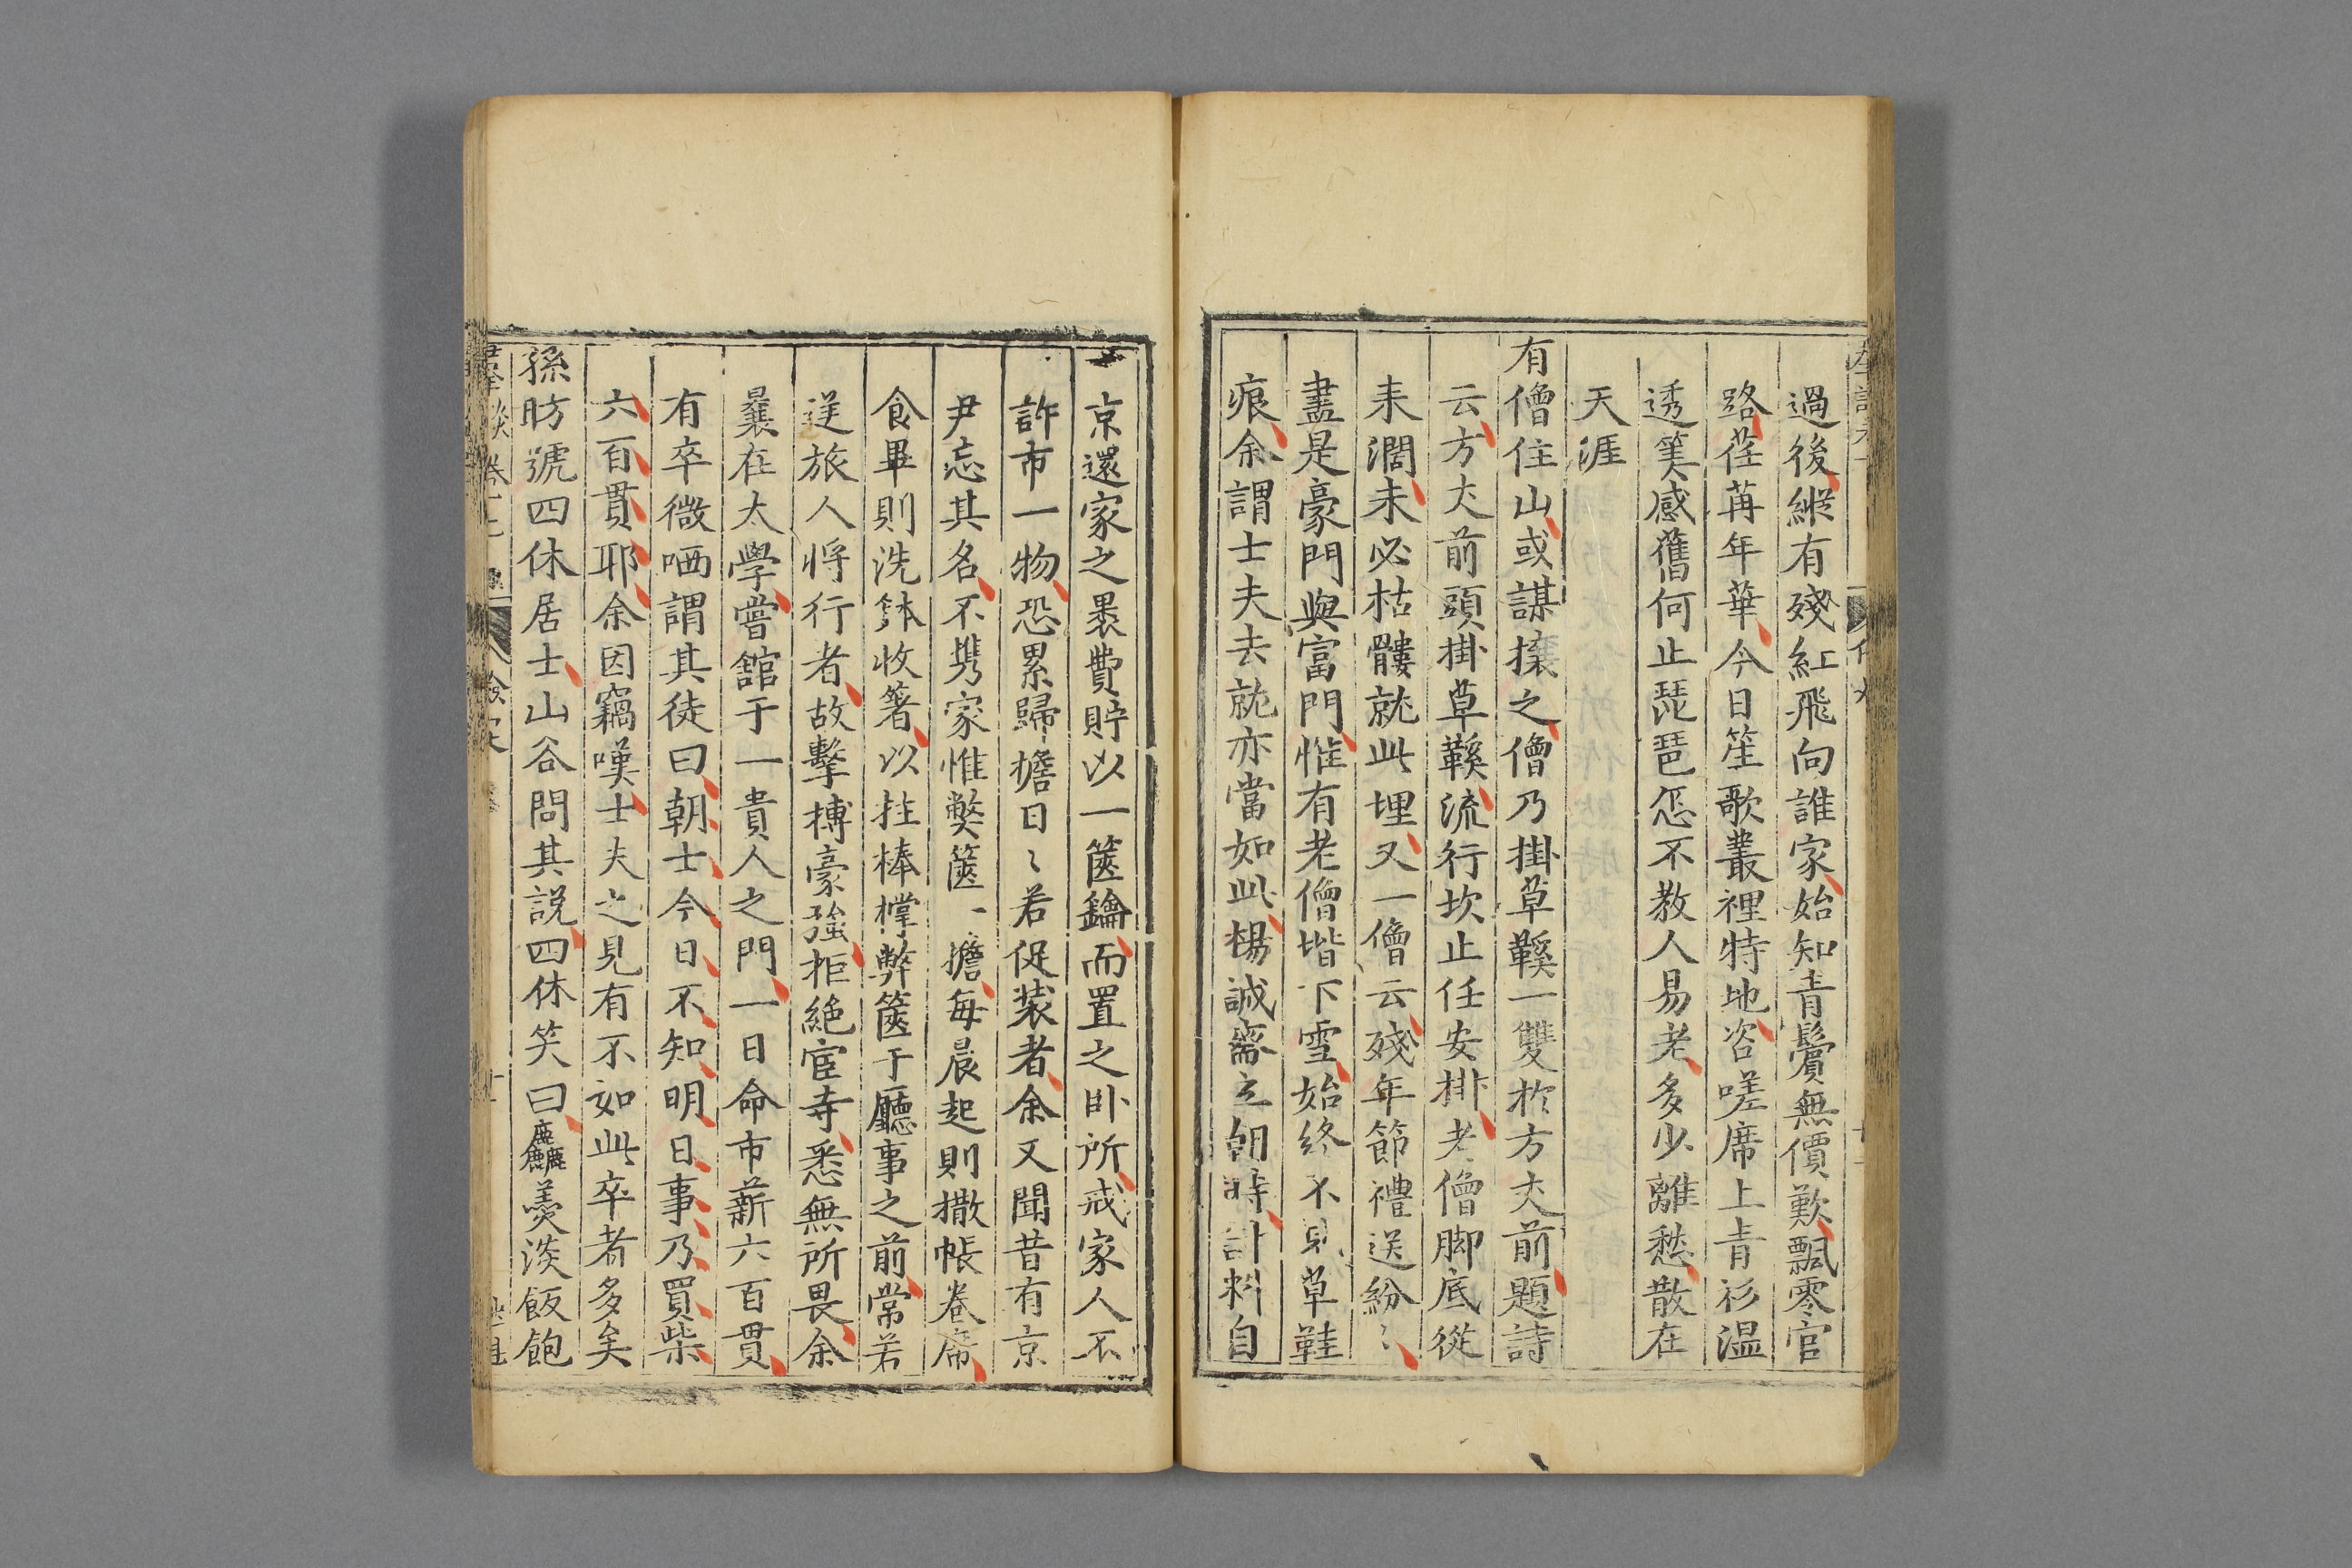 過後縱有殘紅飛向誰家始知青鬢無價歎飄零官
路荏苒年華今日笙歌叢裡特地咨嗟席上青衫溫
透筭感舊何止琵琶怎不教人易老多少離愁散在
天涯
有僧住山或謀攘之僧乃掛草鞵一雙於方丈前題詩
云方丈前頭掛草鞵流行坎止任安排老僧脚底從
來濶未必枯髏就此埋又一僧云殘年節禮送紛〻
盡是豪門與富門惟有老僧堦下雪始終不見草鞋
痕余謂士夫去就亦當如此楊誠齋立朝時計料自
京還家之褁費貯以一篋鑰而置之卧所戒家人不
許市一物恐累歸擔日〻若促裝者余又聞昔有京
尹忘其名不携家惟弊篋一擔每晨起則撒帳卷席
食畢則洗鉢收箸以拄棒撑弊篋于廳事之前常若
逆旅人將行者故擊搏豪強拒絶宦寺悉無所畏余
曩在太學嘗舘于一貴人之門一日命市薪六百貫
有卒微哂謂其徒曰朝士今日不知明日事乃買柴
六百貫耶余因竊嘆士夫之見有不如此卒者多矣
孫昉號四休居士山谷問其説四休笑曰麤羮淡飯飽